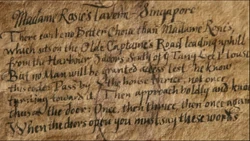 Madam Rose's Tavern - Singapore
There can be no Better Chow than Madame Rose's,
which sits on the Olde Captain's Road leading uphill
from the Harbour
But no Man will be granted access lest he know
this code: Pass by the house thrice, not once
turning toward it. Then approach boldly and knock
thus on the door: Once, then thrice, then once
When the doors open you must say these words